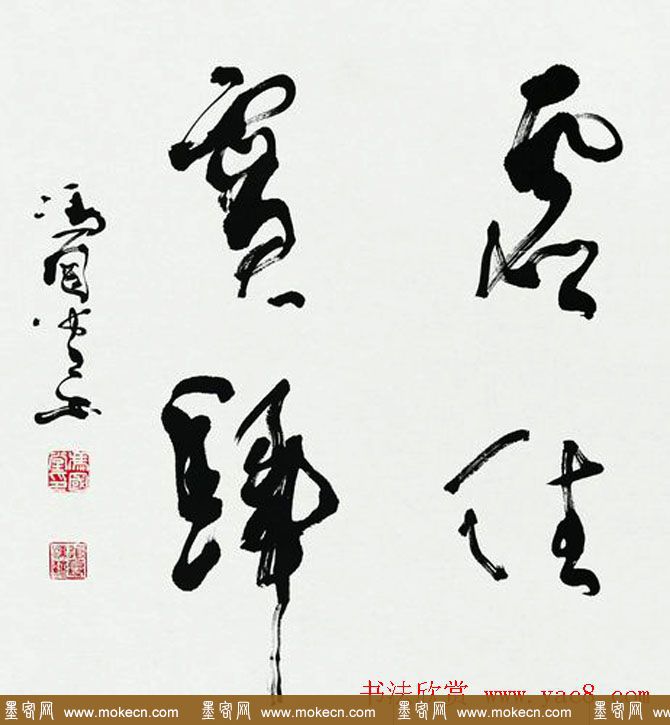 虛往
實歸
书法欣赏 www.yac8.com
墨客网 www.mokecn.com 墨客网 www.mokecn.com 墨客网 www.mokecn.com 墨客网